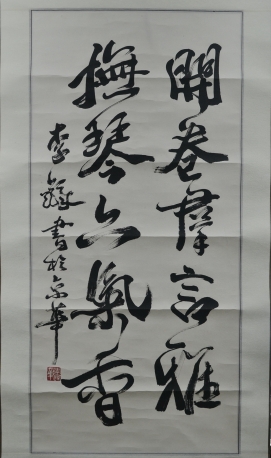 開卷羣言雅
撫琴六氣香
李鐸書於京華